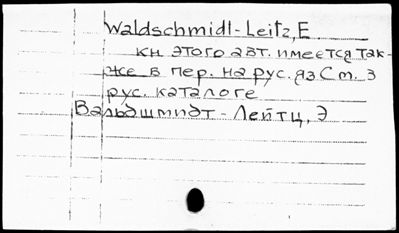 Waldschmidt-Leitz, E
кн. этого авт. имеется так-
же в пер. на рус. яз. См. в
рус. каталоге
Вальдшмидт - Лейтц, Э